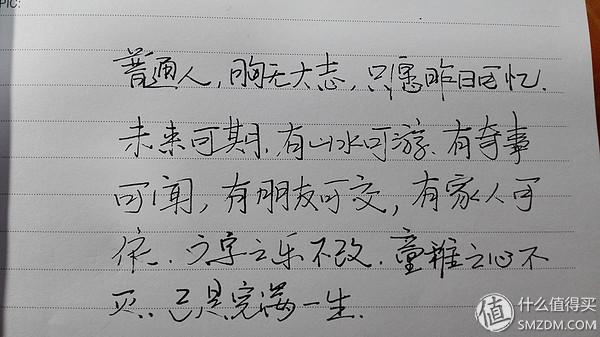 PIC:
普通人,胸无大志,只愿昨日可忆.
未来可期.有山水可游.有奇事
可闻,有朋友可交,有家人可
依.文字之乐不改.童稚之心不
灭.已是完满一生.
值 什么值得买
SMZDM.COM